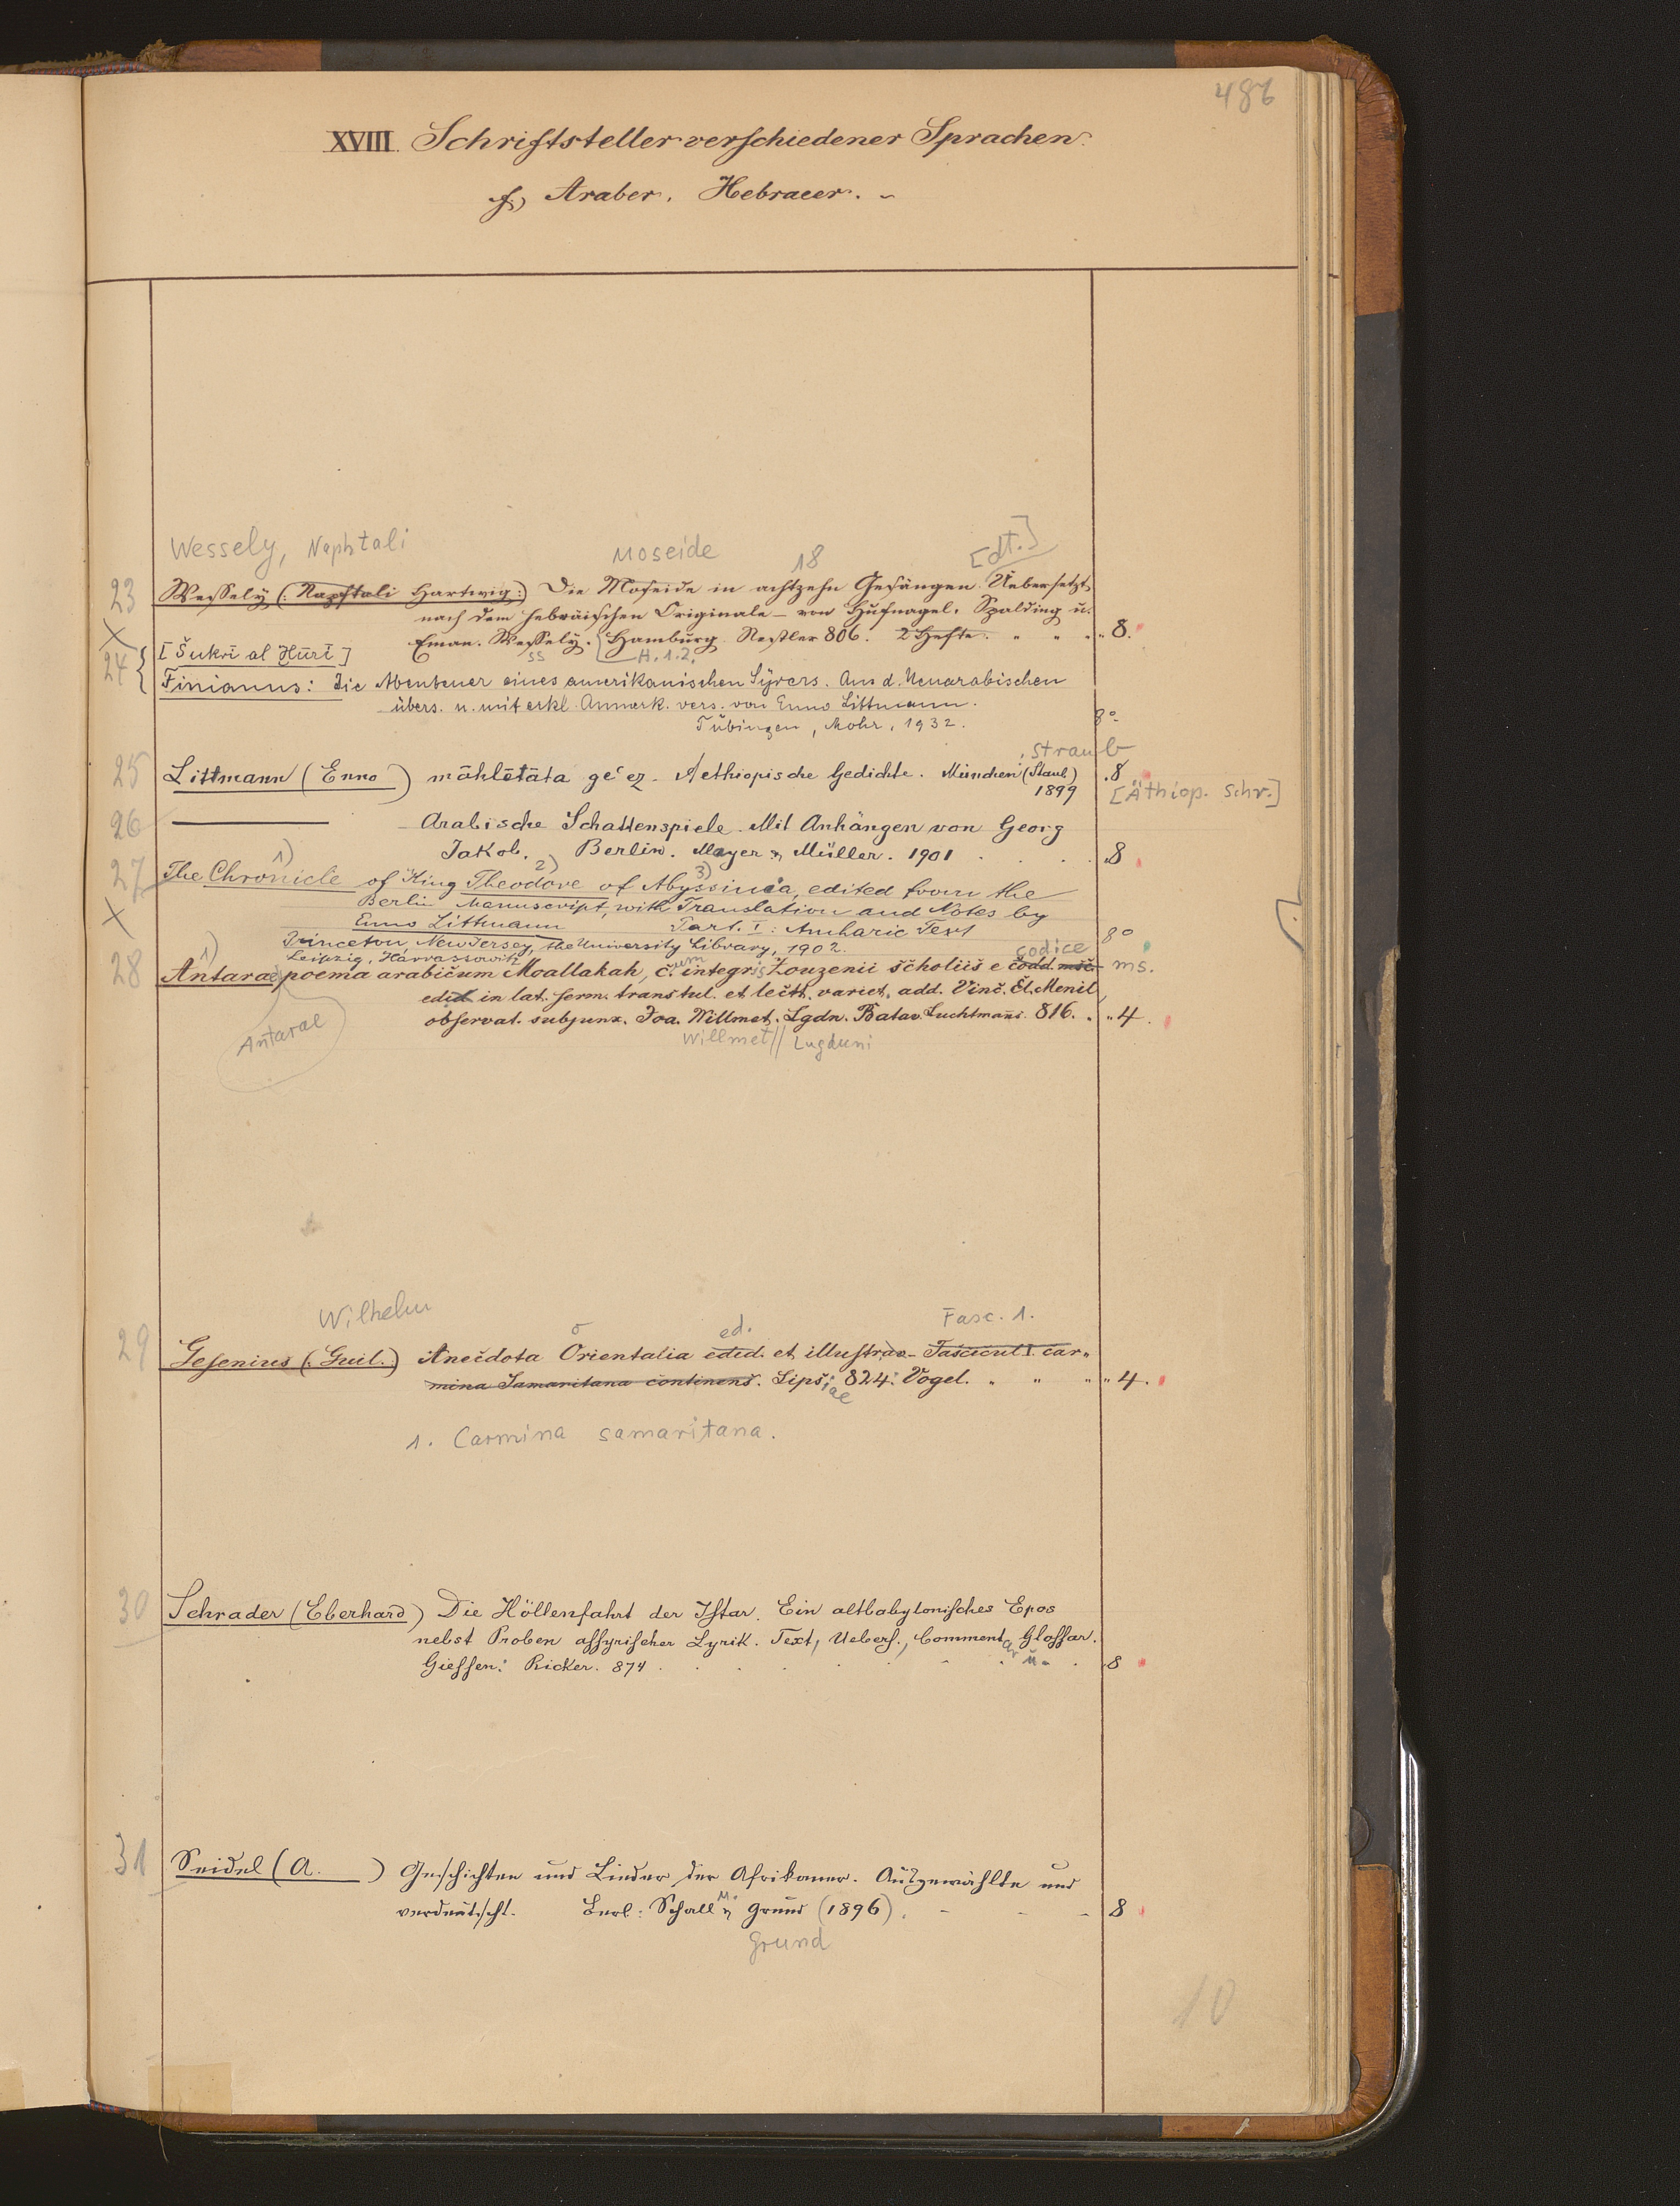 486
XVIII. Schriftsteller verschiedener Sprachen.
f.) Araber. Hebraeer. –
Wessely, Naphtali Moseide 18 [dt.]
23 Wessely (: Naphtali Hartwig :) Die Moseide in achtzehn Gesängen. Uebersetzt
nach dem hebräischen Originale – von Hufnagel, Spalding u.
X Eman. Wessely. Hamburg. Nestler 806. 2 Hefte. " " " 8.
ss H. 1.2.
24 [Šukrī al Ḫūrī]
Finianus: Die Abenteuer eines amerikanischen Syrers. Aus d. Neuarabischen
übers. u. mit erkl. Anmerk. vers. von Enno Littmann.
Tübingen, Mohr, 1932. 8°
: Straub
25 Littmann (Enno) māhlētāta ge'ez. Aethiopische Gedichte. München (Staub) 8
1899 [Äthiop. Schr.]
26 ——— Arabische Schattenspiele. Mit Anhängen von Georg
Jakob. Berlin. Mayer & Müller. 1901 . . . 8
1) 2) 3)
27 The Chronicle of King Theodore of Abyssinia, edited from the
X Berlin Manuscript, with Translation and Notes by
Enno Littmann Part. I: Amharic Text
Princeton, New Jersey, the University Library, 1902. 8°
Leipzig, Harrassowitz codice
1) um
28 Antarae poema arabicum Moallakah, c. integris Zouzenii scholiis e codd. msc. ms.
edid in lat. serm. transtul. et lectt. variet. add. Vinc. El. Menil
observat. subjunx. Joa. Willmet. Lgdn. Batav. Luchtmans. 816. " " 4.
Antarae Willmet || Lugduni
Wilhelm o ed. Fasc. 1.
29 Gesenius (: Guil.) Anecdota Orientalia edid. et illustrav. Fascicul I. car-
mina Samaritana continens. Lips: 824: Vogel. " " " " 4.
iae
1. Carmina samaritana.
30 Schrader (Eberhard) Die Höllenfahrt der Istar. Ein altbabylonisches Epos
nebst Proben assyrischer Lyrik. Text, Uebers., Comment, Glossar.
ar u.
Giessen: Ricker. 874 . . . . . . . 8
31 Seidel (A. ) Geschichten und Lieder der Afrikaner. Ausgewählte und
verdeutscht. Berl: Schall u. & Grund (1896). – – – 8
Grund
10